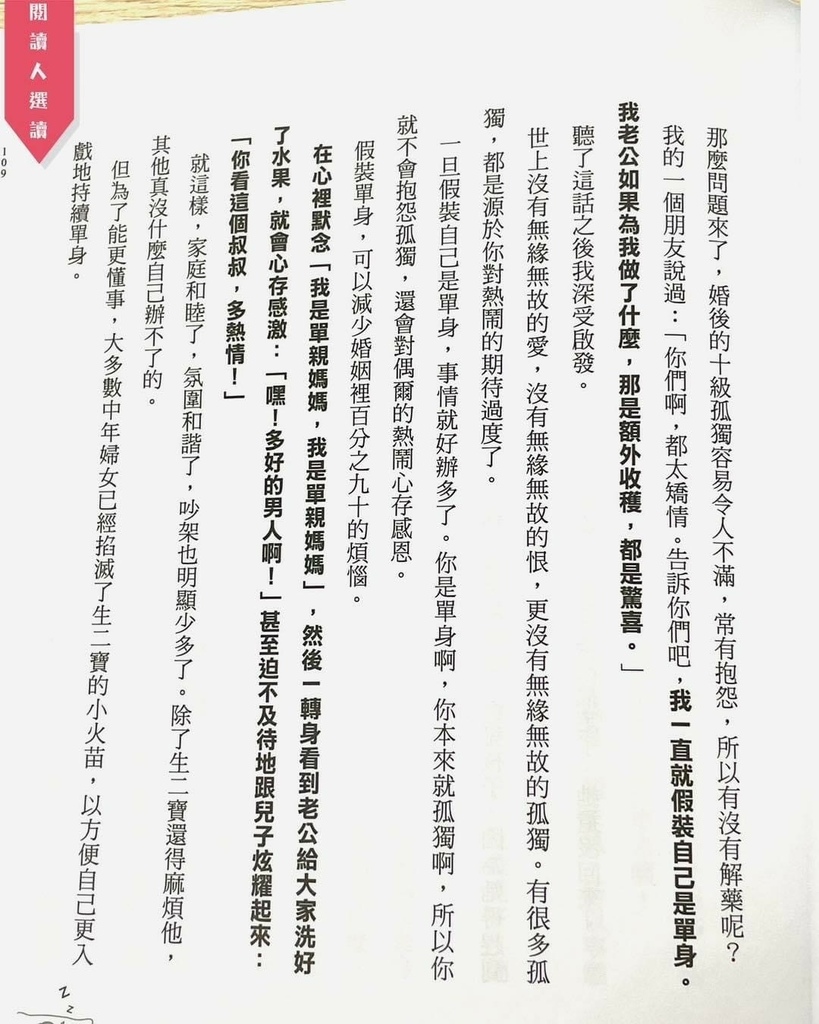 閱讀人選讀
那麼問題來了，婚後的十級孤獨容易令人不滿，常有抱怨，所以有沒有解藥呢？
我的一個朋友說過：「你們啊，都太矯情。告訴你們吧，我一直就假裝自己是單身。
我老公如果為我做了什麼，那是額外收穫，都是驚喜。」
聽了這話之後我深受啟發。
世上沒有無緣無故的愛，沒有無緣無故的恨，更沒有無緣無故的孤獨。有很多孤
獨，都是源於你對熱鬧的期待過度了。
一旦假裝自己是單身，事情就好辦多了。你是單身啊，你本來就孤獨啊，所以你
就不會抱怨孤獨，還會對偶爾的熱鬧心存感恩。
假裝單身，可以減少婚姻裡百分之九十的煩惱。
在心裡默念「我是單親媽媽，我是單親媽媽」，然後一轉身看到老公給大家洗好
了水果，就會心存感激：「嘿！多好的男人啊！」甚至迫不及待地跟兒子炫耀起來：
「你看這個叔叔，多熱情！」
就這樣，家庭和睦了，氛圍和諧了，吵架也明顯少多了。除了生二寶還得麻煩他，
其他真沒什麼自己辦不了的。
但為了能更懂事，大多數中年婦女已經掐滅了生二寶的小火苗，以方便自己更入
戲地持續單身。
109
z
z